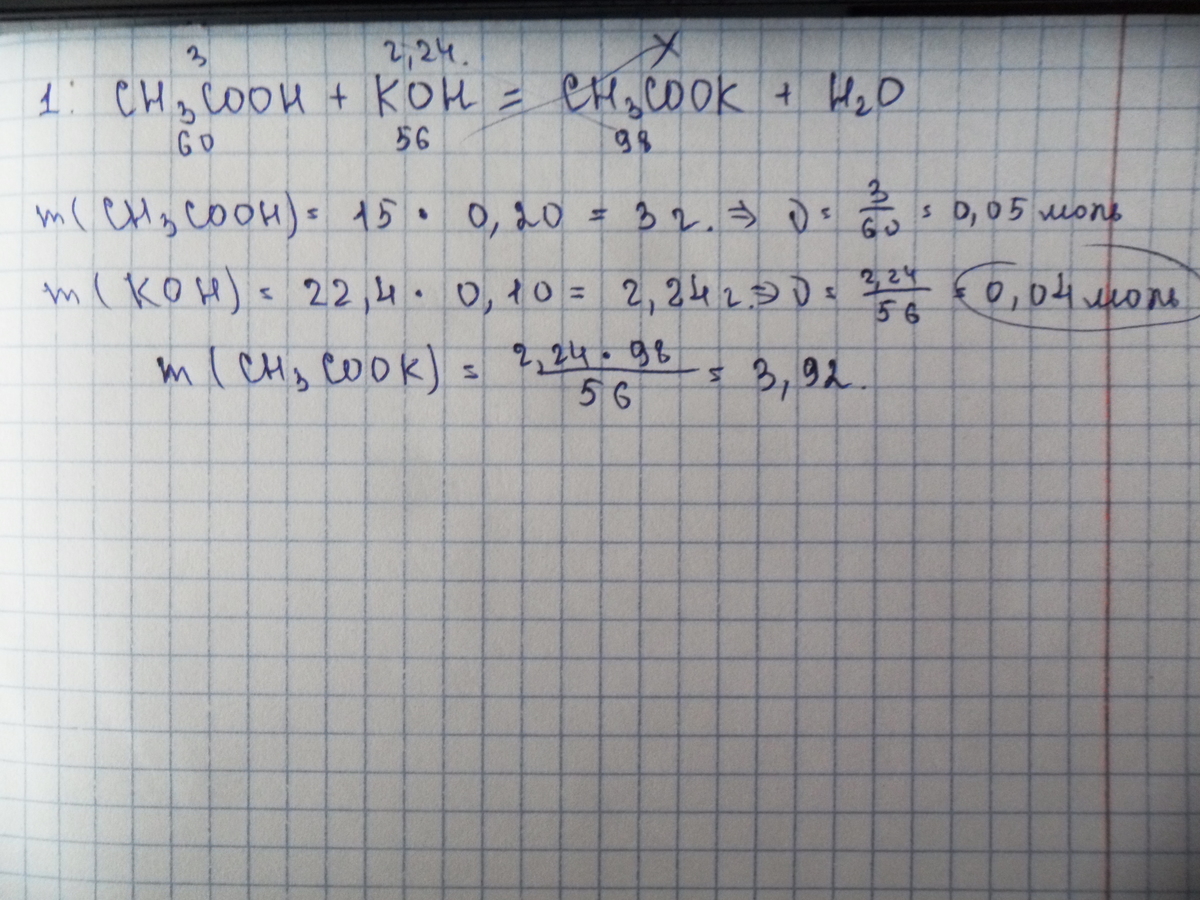 3 2,24. x
1: CH₃COOH + KOH = CH₃COOK + H₂O
60 56 98
m(CH₃COOH) = 15 · 0,20 = 3 г. ⇒ ν = 3/60 = 0,05 моль
m(KOH) = 22,4 · 0,10 = 2,24 г. ⇒ ν = 2,24/56 = 0,04 моль
m(CH₃COOK) = 2,24 · 98/56 = 3,92.